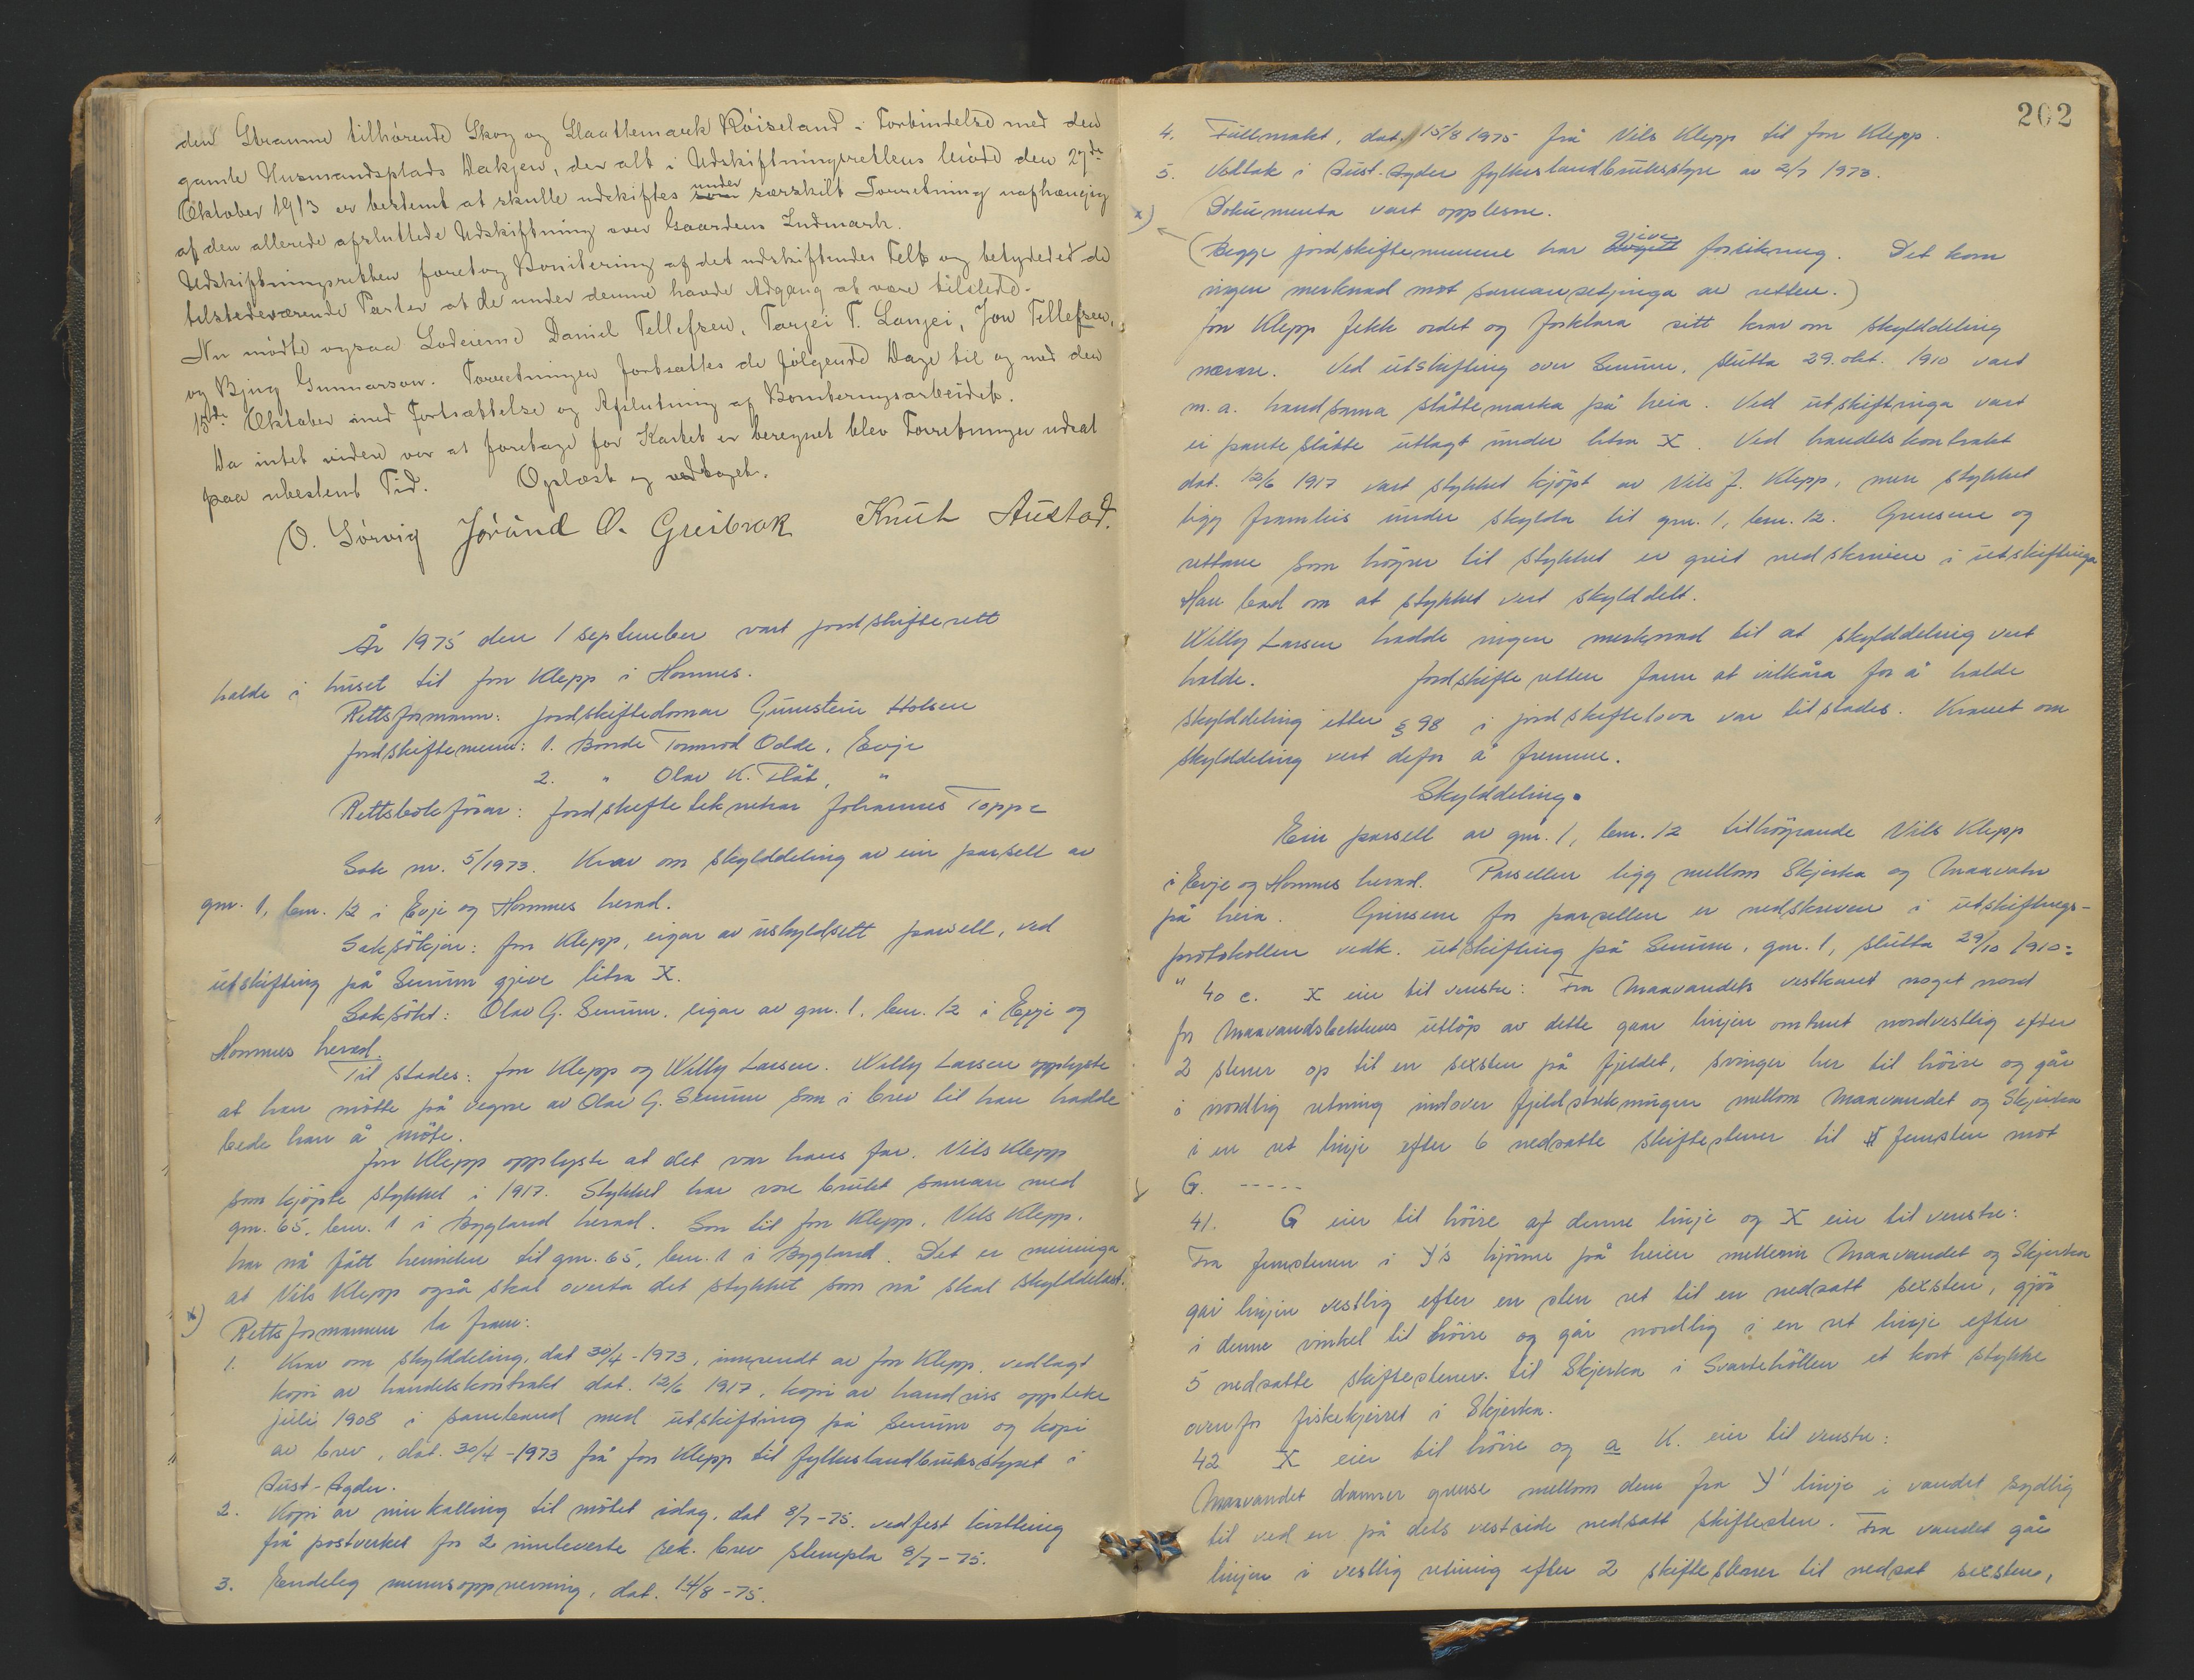 den Straume tilhørende Skog og Slaattemark Røiseland i Forbindelse med den
gamle Husmandsplads Dakjen, der alt i Udskiftningsrettens Møde den 27de
Oktober 1913 er bestemt at skulle udskiftes under særskilt Forretning uafhængig
af den allerede afsluttede Udskiftning over Gaardens Indmark.
Udskiftningsretten foretog Bonitering af det udskiftendes Felt og betydeded de
tilstedeværende Parter at de under denne havde Adgang at være tilstede.
Nu mødte ogsaa Lodeierne Daniel Tellefsen, Tarjei T. Langei, Jon Tellefsen,
og Bjug Gunnarson. Forretningen fortsattes de følgende Dage til og med den
15de Oktober med Fortsættelse og Afslutning af Boniteringsarbeidet.
Da intet videre var at foretage før Kartet er beregnet blev Forretningen udsat
paa ubestemt Tid. Oplæst og vedtaget.
O. Sørvig Jørund O. Greibrok Knut Austad.
År 1975 den 1 september vart jordskifterett
halde i huset til Jon Klepp i Hornnes.
Rettsformann: jordskiftedomar Gunstein Holsen
Jordskiftemenn: 1. Bonde Tormod Odde, Evje
2. " Olav K. Flåt, "
Rettsbokførar: Jordskifteteknikar Johannes Toppe
Sak nr. 5/1973. Krav om skylddeling av ein parsell av
gnr. 1, bnr. 12 i Evje og Hornnes herad.
Saksökjar: Jon Klepp, eigar av uskyldsett parsell, ved
utskifting på Senum gjeve litra X.
Saksökt: Olav G. Senum, eigar av gnr. 1, bnr. 12 i Evje og
Hornnes herad.
Til stades: Jon Klepp og Willy Larsen. Willy Larsen opplyste
at han mötte på vegne av Olav G. Senum som i brev til han hadde
bede han å möte.
Jon Klepp opplyste at det var hans far, Nils Klepp
som kjöpte stykket i 1917. Stykket har vore brukt saman med
gnr. 65, bnr. 1 i Bygland herad. Son til Jon Klepp, Nils Klepp,
har nå fått heimelen til gnr. 65, bnr. 1 i Bygland. Det er meininga
at Nils Klepp også skal overta det stykket som nå skal skylddelast.
x) Rettsformannen la fram:
1. Krav om skylddeling, dat 30/4-1973, innsendt av Jon Klepp, vedlagt
kopi av handelskontrakt dat. 12/6 1917, kopi av handriss oppteke
juli 1908 i samband med utskifting på Senum og kopi
av brev, dat. 30/4-1973 frå Jon Klepp til fylkeslandbruksstyret i
Aust-Agder.
2. Kopi av innkalling til mötet idag, dat 8/7-75, vedfest kvittering
frå postverket for 2 innleverte rek. brev stempla 8/7-75.
3. Endeleg mennsoppnevning, dat. 14/8-75.
202
4. Fullmakt, dat. 15/8 1975 frå Nils Klepp til Jon Klepp.
5. Vedtak i Aust-Agder fylkeslandbruksstyre av 2/7 1973.
x) Dokumenta vart opplesne.
(Begge jordskiftemennene har gjeve forsikring. Det kom
ingen merknad mot samansetjinga av retten.)
Jon Klepp fekk ordet og forklara sitt krav om skylddeling
nærare. Ved utskifting over Senum, slutta 29. okt. 1910 vart
m.a. handsama slåttemarka på heia. Ved utskiftinga vart
ei slåtte utlagt under litra X. Ved handelskontrakt
dat. 12/6 1917 vart stykket kjöpt av Nils J. Klepp, men stykket
ligg framleis under skylda til gnr. 1, bnr. 12. Grensene og
rettane som höyrer til stykket er greit nedskrivne i utskiftinga
Han bad om at stykket vert skylddelt.
Willy Larsen hadde ingen merknad til at skylddeling vert
halde. Jordskifteretten fann at vilkåra for å halde
skylddeling etter § 98 i jordskiftelova var tilstades. Kravet om
skylddeling vert defor å fremme.
Skylddeling.
Ein parsell av gnr. 1, bnr. 12 tilhöyrande Nils Klepp
i Evje og Hornnes herad. Parsellen ligg mellom Skjerka og Maavatn
på heia. Grensene for parsellen er nedskreven i utskiftings-
protokollen vedk. utskifting på Senum, gnr. 1, slutta 29/10 1910:
" 40 c. X eier til venstre: Fra Maavandets vestkant noget nord
for Maavandsbekkens utlöp av dette gaar linjen omtrent nordvestlig efter
2 stener op til en sexsten på fjeldet, svinger her til höire og går
i nordlig retning indover fjeldstrekningen mellom Maavandet og Skjerka
i en ret linje efter 6 nedsatte skiftestener til femsten mot
G. -----
41. G eier til höire af denne linje og X eier til venstre:
Fra femstenen i Y's hjörne på heien mellem Maavandet og Skjerka
går linjen vestlig efter en sten ret til en nedsatt sexsten, gjör
i denne vinkel til höire og går nordlig i en ret linje efter
5 nedsatte skiftestener til Skjerka i Svartehöllen et kort stykke
ovenfor fiskekjerret i Skjerka.
42 X eier til höire og a K. eier til venstre:
Maavandet danner grense mellom dem fra Y' linje i vandet sydlig
til ved en på dets vestside nedsatt skiftesten. Fra vandet går
linjen i vestlig retning efter 2 skiftestener til nedsat sexsten,